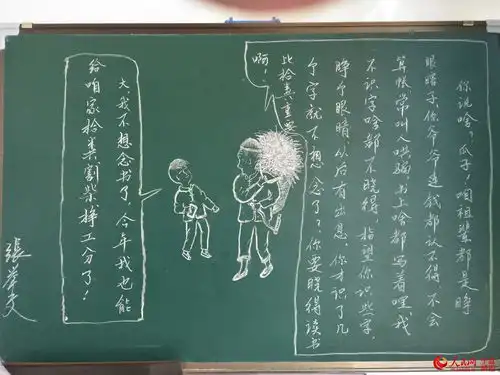 你说啥？瓜子，咱祖辈都是睁
眼瞎子，你爷爷连钱都认不得，不会
算账常叫人哄骗，书上啥都写着哩，我
不识字啥都不晓得，指望你识些字，
睁个眼睛，以后有出息，你才识了几
个字就不想念了？你要晓得读书
比拾粪重要
啊！
大，我不想念书了，今年我也能
给咱家拾粪割柴挣工分了！
人民网